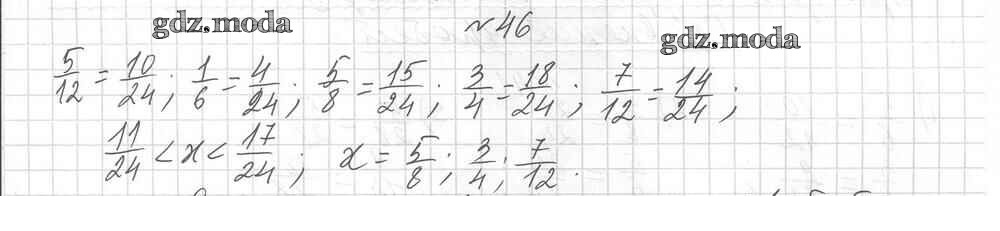 gdz.moda №46 gdz.moda
5/12 = 10/24; 1/6 = 4/24; 5/8 = 15/24; 3/4 = 18/24; 7/12 = 14/24;
11/24 < x < 17/24; x = 5/8; 3/4; 7/12.